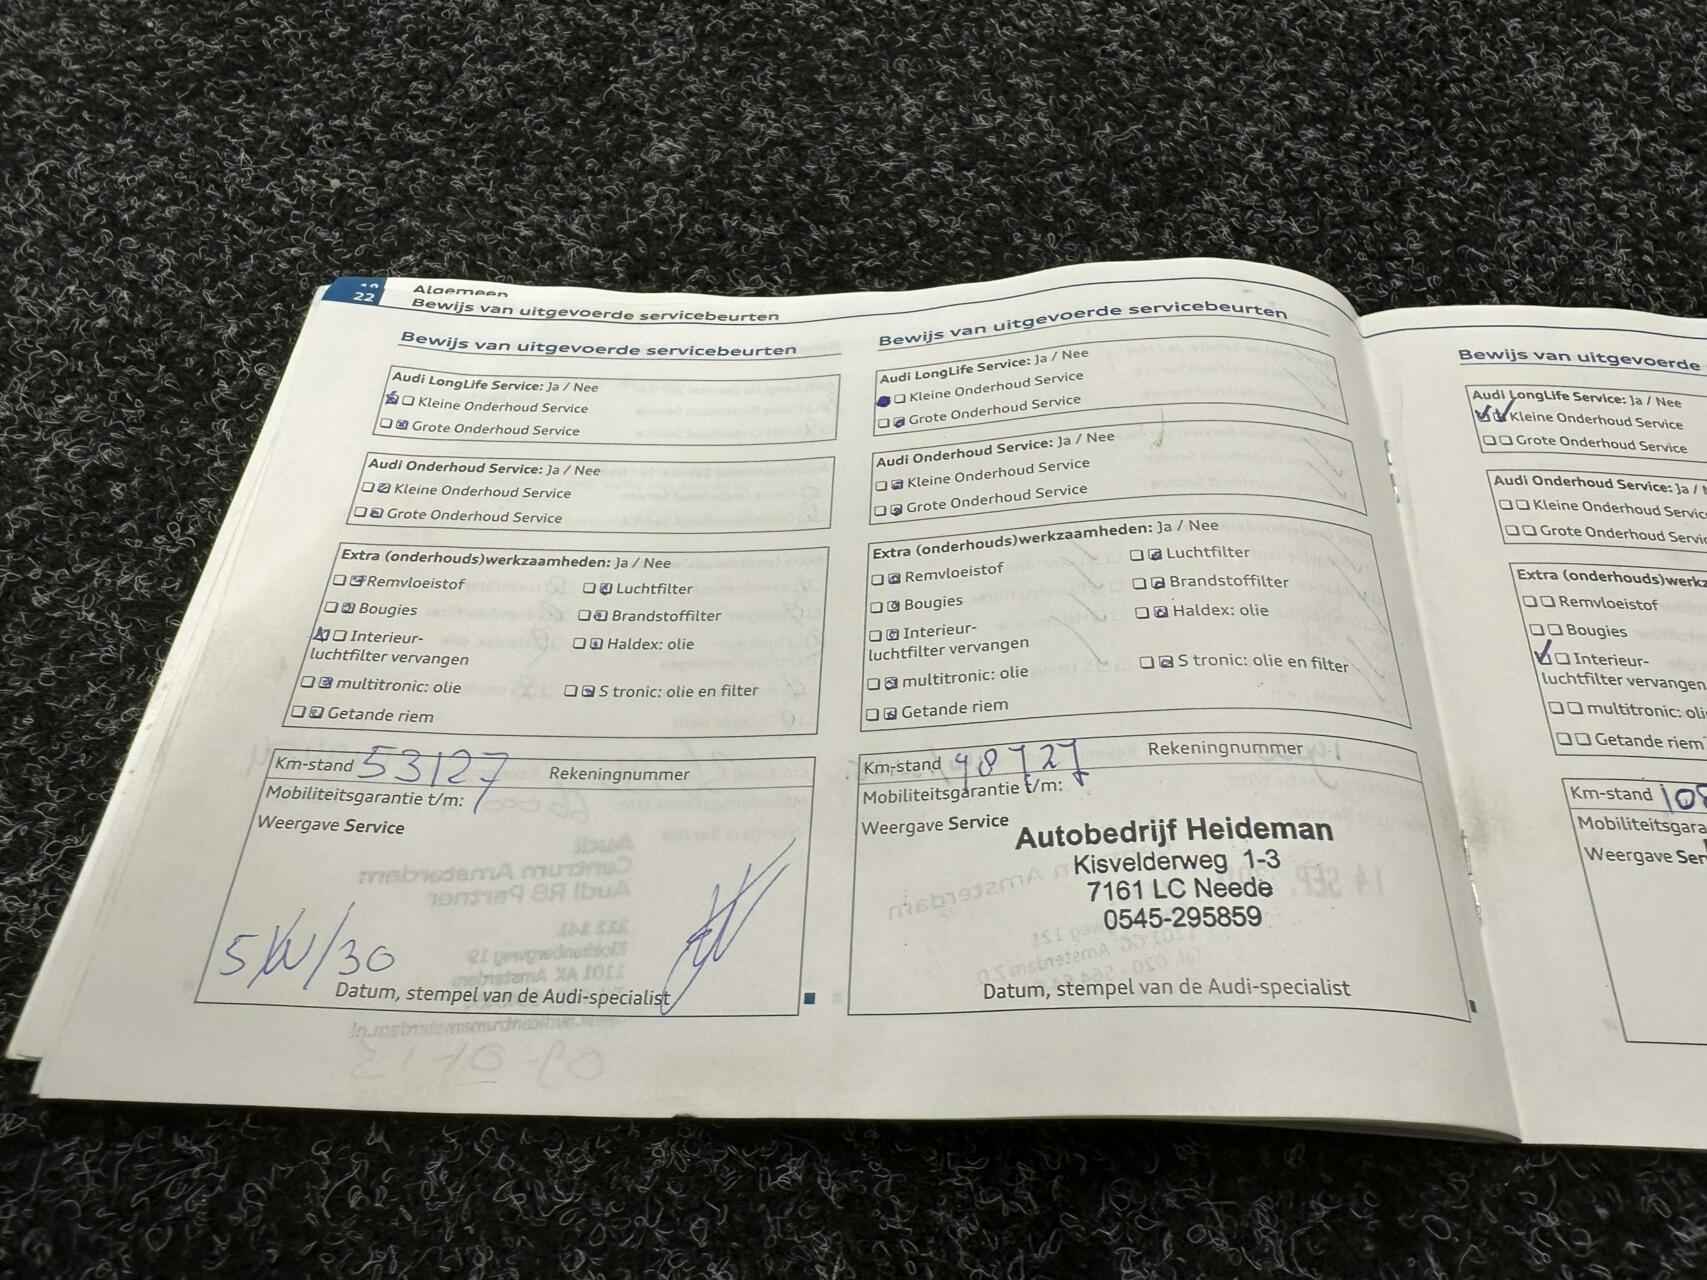 22
Algemeen
Bewijs van uitgevoerde servicebeurten
Bewijs van uitgevoerde servicebeurten
Audi LongLife Service: Ja / Nee
Kleine Onderhoud Service
Grote Onderhoud Service
Audi Onderhoud Service: Ja / Nee
Kleine Onderhoud Service
Grote Onderhoud Service
Extra (onderhouds)werkzaamheden: Ja / Nee
Remvloeistof
Luchtfilter
Bougies
Brandstoffilter
Interieur-
luchtfilter vervangen
Haldex: olie
multitronic: olie
S tronic: olie en filter
Getande riem
Km-stand 53127 Rekeningnummer
Mobiliteitsgarantie t/m:
Weergave Service
5W/30
Datum, stempel van de Audi-specialist
Bewijs van uitgevoerde servicebeurten
Audi LongLife Service: Ja / Nee
Kleine Onderhoud Service
Grote Onderhoud Service
Audi Onderhoud Service: Ja / Nee
Kleine Onderhoud Service
Grote Onderhoud Service
Extra (onderhouds)werkzaamheden: Ja / Nee
Remvloeistof
Luchtfilter
Bougies
Brandstoffilter
Interieur-
luchtfilter vervangen
Haldex: olie
multitronic: olie
S tronic: olie en filter
Getande riem
Km-stand 98727 Rekeningnummer
Mobiliteitsgarantie t/m:
Weergave Service
Autobedrijf Heideman
Kisvelderweg 1-3
7161 LC Neede
0545-295859
Datum, stempel van de Audi-specialist
Bewijs van uitgevoerde
Audi LongLife Service: Ja / Nee
Kleine Onderhoud Service
Grote Onderhoud Service
Audi Onderhoud Service: Ja /
Kleine Onderhoud
Grote Onderhoud
Extra (onderhouds)
Remvloeistof
Bougies
Interieur-
luchtfilter vervangen
multitronic:
Getande riem
Km-stand
Weergave